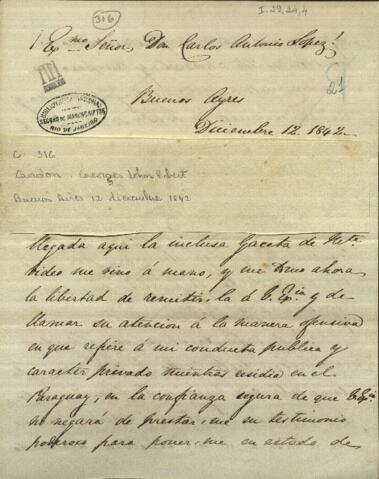 316
I-29,24,4
Exmo Señor, Don Carlos Antonio Lopez.
21
Buenos Ayres
Diciembre 12. 1842.
BIBLIOTHECA NACIONAL
SECÇÃO DE MANUSCRIPTOS
RIO DE JANEIRO
C-316
Gordon, Georges John Robert
Buenos Aires 12 diciembre 1842
llegada aqui la inclusa Gaceta de Nte.
tideo me vino á mano, y me tomo ahora
la libertad de remitir-la á V. Exia y de
llamar su atencion á la manera ofensiva
en que refiere á mi conducta publica y
caracter privado mientras residia en el
Paraguay; en la confianza segura de que V. Exia
no negará de prestar-me su testimonio
poderoso para poner-me en estado de